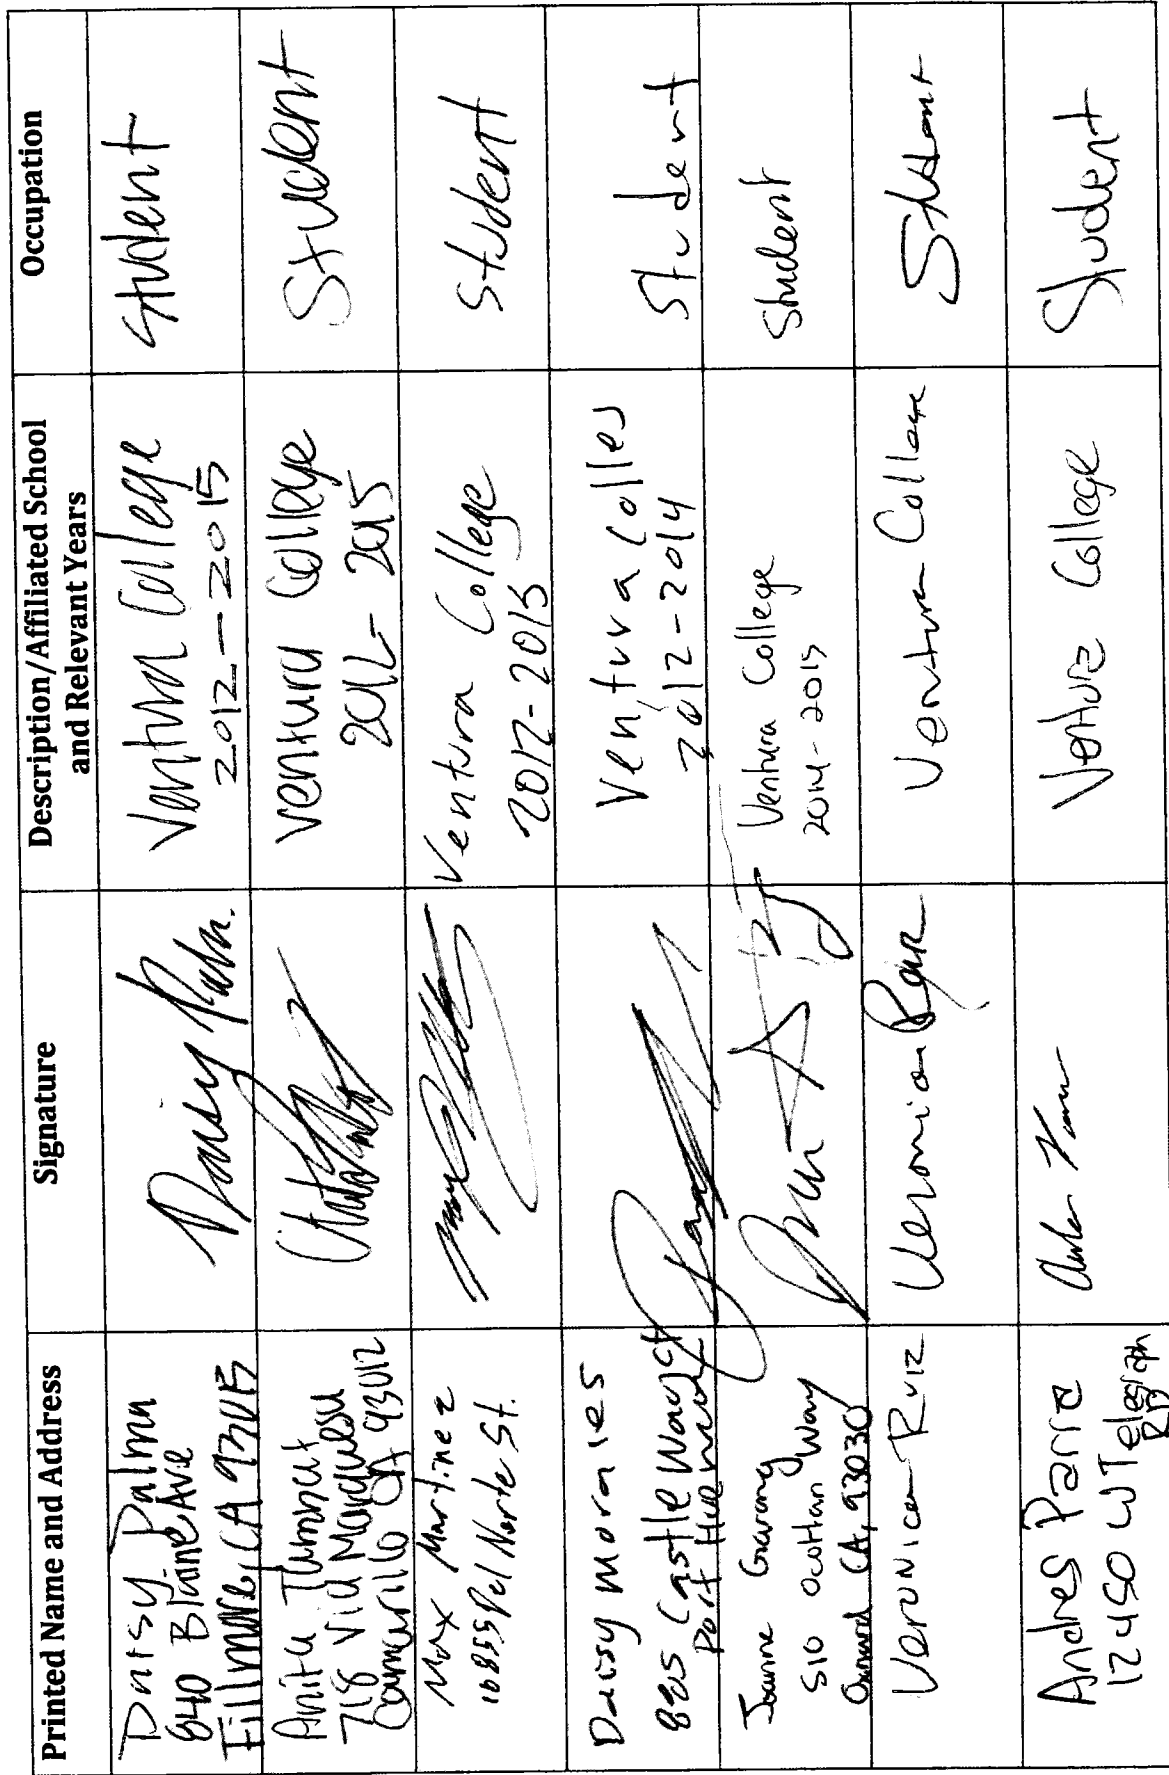 Printed Name and Address
Signature
Description/Affiliated School
and Relevant Years
Occupation
Daisy Palma
840 Blaine Ave
Fillmore, CA 93015
Daisy Palm.
Ventura College
2012-2015
Student
Anita
718 Via
Camarillo CA 93012
Ventura College
2012-2015
Student
Max Martinez
10855 Del Norte St.
Ventura College
2012-2015
Student
Daisy morales
Castle Way ct
Port Hueneme
Ventura Colleg
2012-2014
Student
Joanne
510 Way
Oxnard CA, 93030
Ventura College
2014-2015
Student
Veronica Ruiz
Veronica
Ventura College
Student
Andres Parra
12450 W Telegraph
RD
Ventura College
Student